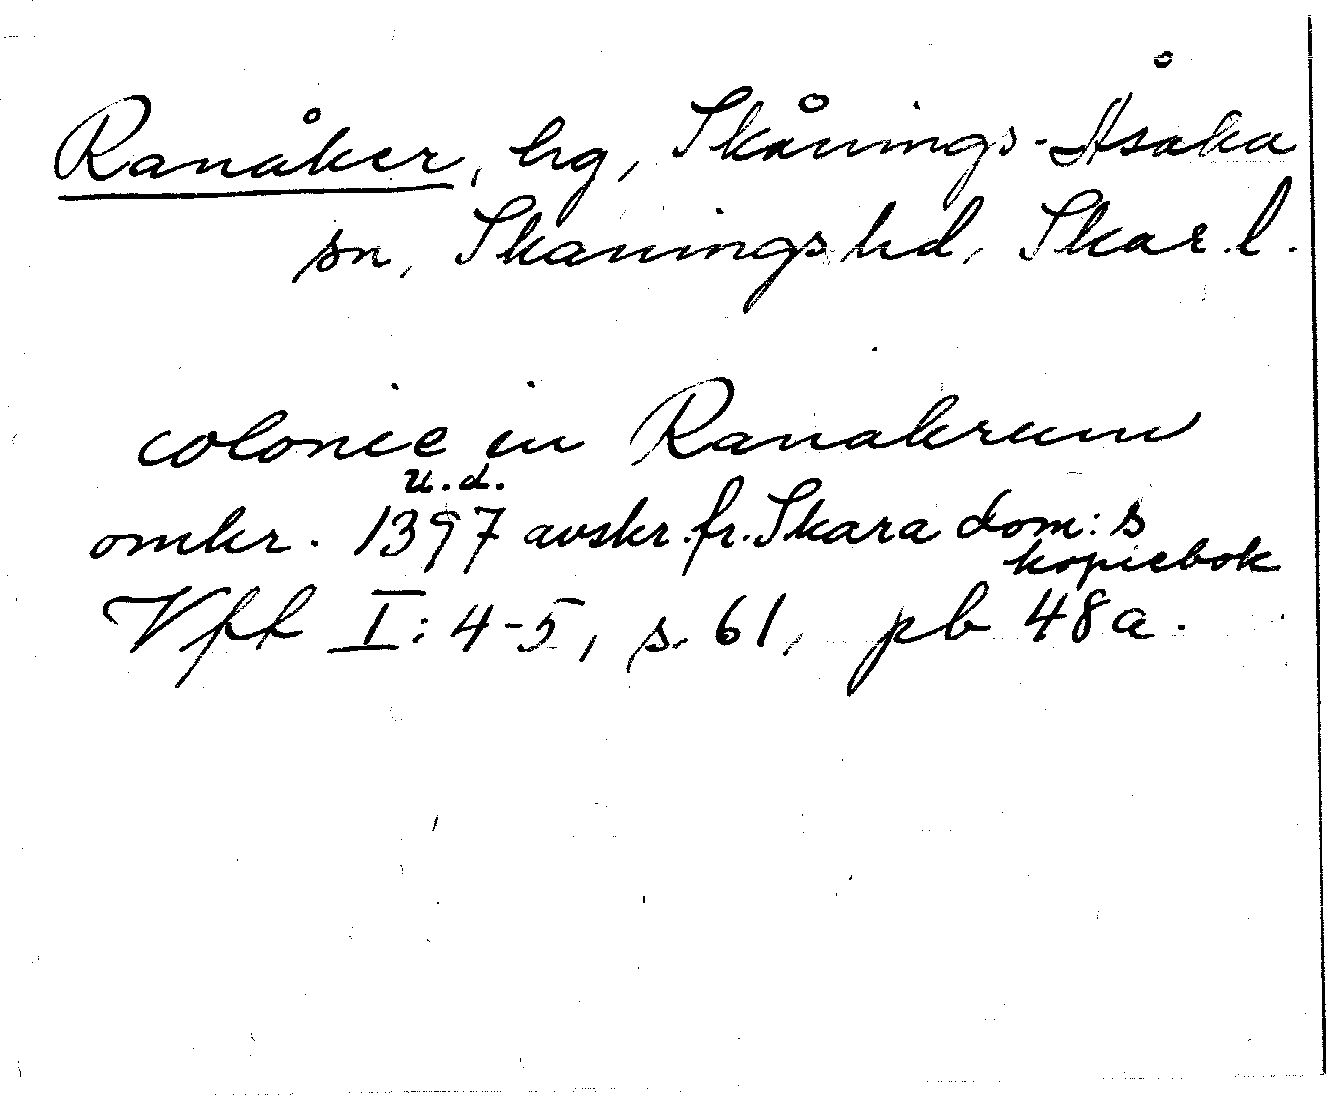 Ranåker, hg, Skånings-Åsaka
sn, Skånings hd, Skar. l.
colonie in Ranakrum
u.d.
omkr. 1397 avskr. fr. Skara dom:s
kopiebok
Vfft I: 4-5, s. 61, pb 48a.